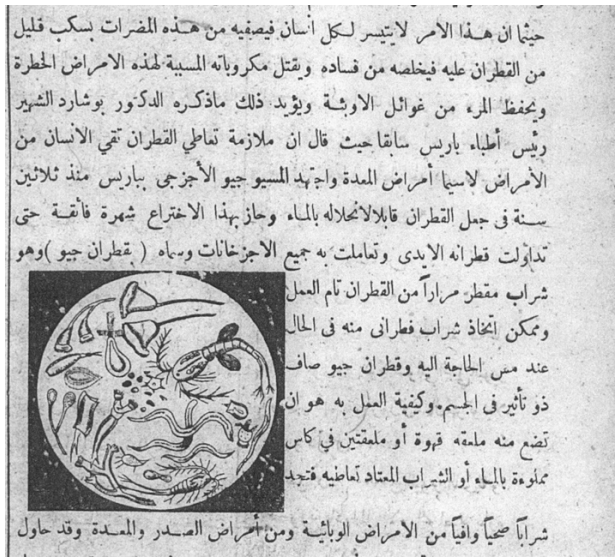 حيثما ان هذا الامر لايتيسر لكل انسان فيصفيه من هذه المضرات بسكب قليل
من القطران عليه فيخلصه من فساده ويقتل مكروباته المسببة لهذه الامراض الخطرة
ويحفظ المرء من غوائل الاوبئة ويؤيد ذلك ماذكره الدكتور بوشارد الشهير
رئيس أطباء باريس سابقا حيث قال ان ملازمة تعاطي القطران تقي الانسان من
الأمراض لاسيما أمراض المعدة واجتهد المسيو جيو الأجزجي بباريس منذ ثلاثين
سنة فى جعل القطران قابلا لانحلاله بالماء وحاز بهذا الاختراع شهرة فائقة حتى
تداولت قطرانه الايدى وتعاملت به جميع الاجزخانات وسماه ( بقطران جيو ) وهو
شراب مقطر مراراً من القطران تام العمل
وممكن اتخاذ شراب قطرانى منه فى الحال
عند مس الحاجة اليه وقطران جيو صاف
ذو تأثير فى الجسم. وكيفية العمل به هو ان
تضع منه ملعقه قهوة أو ملعقتين في كاس
مملوءة بالماء أو الشراب المعتاد تعاطيه فتجد
شراباً صحياً وافياً من الامراض الوبائية ومن أمراض الصدر والمعدة وقد حاول